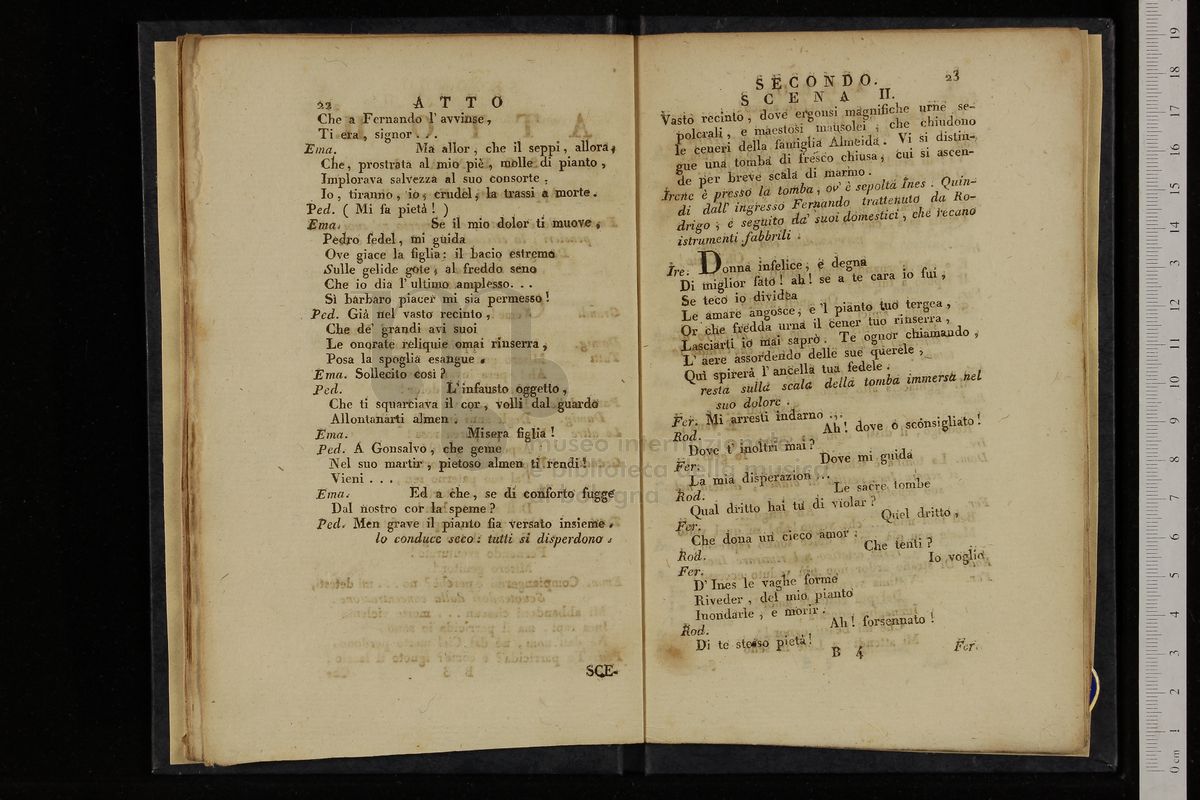 22 ATTO
Che a Fernando l' avvinse,
Ti era, signor...
Ema. Ma allor, che il seppi, allora,
Che, prostrata al mio piè, molle di pianto,
Implorava salvezza al suo consorte:
Io, tiranno, io, crudèl, la trassi a morte.
Ped. ( Mi fa pietà! )
Ema. Se il mio dolor ti muove,
Pedro fedel, mi guida
Ove giace la figlia: il bacio estremo
Sulle gelide gote, al freddo seno
Che io dia l' ultimo amplesso...
Sì bàrbaro piacer mi sia permesso!
Ped. Già nel vasto recinto,
Che de' grandi avi suoi
Le onorate reliquie omai rinserra,
Posa la spoglia esangue.
Ema. Sollecito così?
Ped. L' infausto oggetto,
Che ti squarciava il cor, volli dal guardo
Allontanarti almen.
Ema. Misera figlia!
Ped. A Gonsalvo, che geme
Nel suo martir, pietoso almen ti rendi!
Vieni...
Ema. Ed a che, se di conforto fugge
Dal nostro cor la speme?
Ped. Men grave il pianto fia versato insieme.
lo conduce seco: tutti si disperdono.
SCE-
SECONDO. 23
SCENA II.
Vasto recinto, dove ergonsi magnifiche urne se-
polcrali, e maestosi mausolei, che chiudono
le ceneri della famiglia Almeida. Vi si distin-
gue una tomba di fresco chiusa, cui si ascen-
de per breve scala di marmo.
Irene è presso la tomba, ov' è sepolta Ines. Quin-
di dall' ingresso Fernando trattenuto da Ro-
drigo, e seguito da' suoi domestici, che recano
istrumenti fabbrili.
Ire. Donna infelice, e degna
Di miglior fato! ah! se a te cara io fui,
Se teco io dividea
Le amare angosce, e 'l pianto tuo tergea,
Or che fredda urna il cener tuo rinserra,
Lasciarti io mai saprò. Te ognor chiamando,
L' aere assordendo delle sue querele,
Quì spirerà l' ancella tua fedele.
resta sulla scala della tomba immersa nel
suo dolore.
Fer. Mi arresti indarno...
Rod. Ah! dove o sconsigliato!
Dove t' inoltri mai?
Fer. Dove mi guida
La mia disperazion...
Rod. Le sacre tombe
Qual dritto hai tu di violar?
Fer. Quel dritto,
Che dona un cieco amor:
Rod. Che tenti?
Fer. Io voglio
D' Ines le vaghe forme
Riveder, del mio pianto
Inondarle, e morir.
Rod. Ah! forsennato!
Di te stesso pietà!
B 4 Fer.
museo internazionale
e biblioteca della musica
di bologna